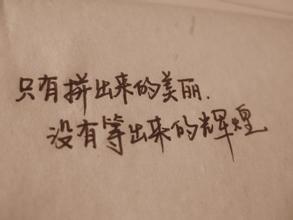 只有拼出来的美丽.
没有等出来的辉煌